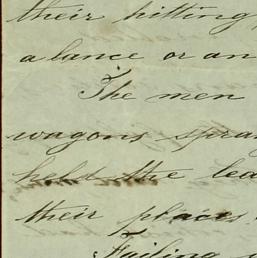 their hitting,
a lance or an
The men
wagons spra
held the lea
their places.
Failing